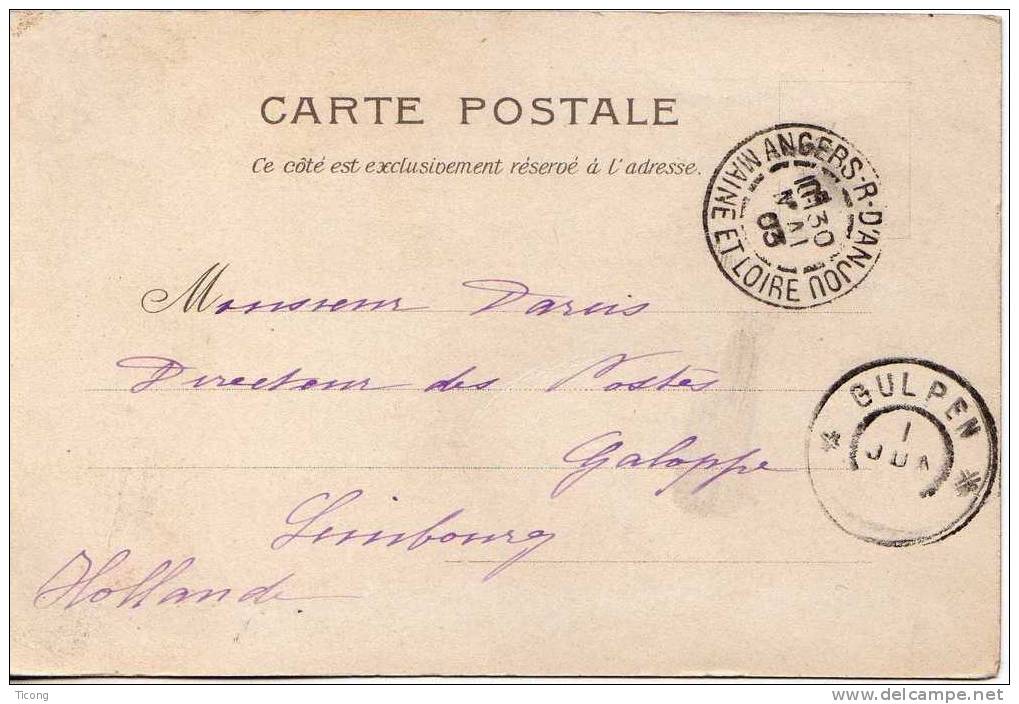 CARTE POSTALE
Ce côté est exclusivement réservé à l'adresse.
ANGERS-R-D'ANJOU
MAINE ET LOIRE
30
MAI
03
Monsieur Darcis
Directeur des Postes
Galoppe
Limbourg
Hollande
GULPEN
1
JUN
Ticong
www.delcampe.net